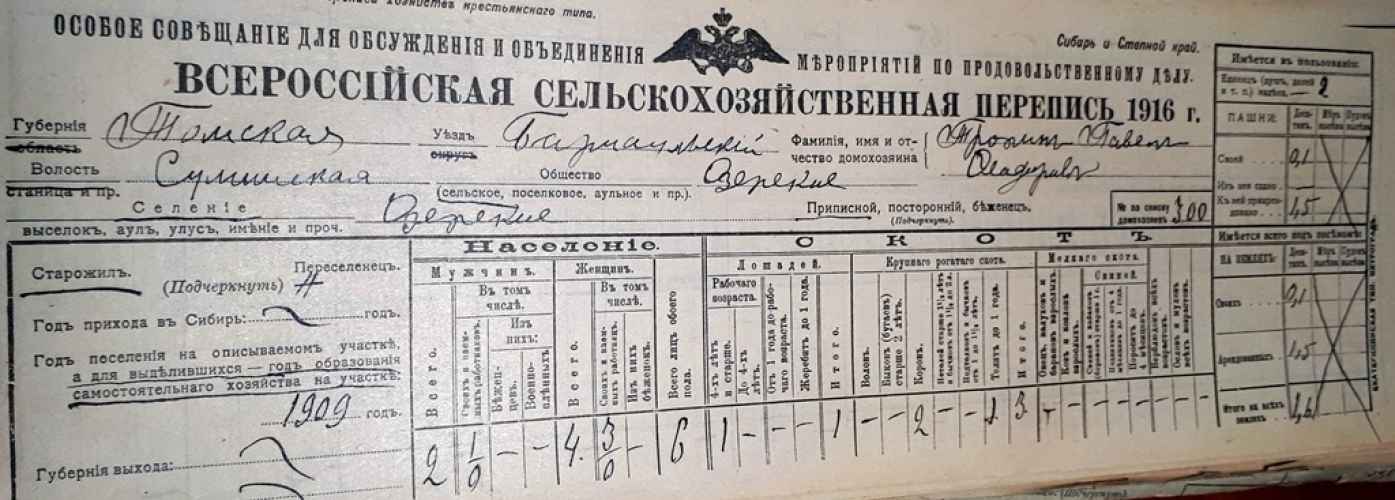 хозяйствъ крестьянскаго типа.
ОСОБОЕ СОВѢЩАНІЕ ДЛЯ ОБСУЖДЕНІЯ И ОБЪЕДИНЕНІЯ МѢРОПРІЯТІЙ ПО ПРОДОВОЛЬСТВЕННОМУ ДѢЛУ.
Сибирь и Степной край.
ВСЕРОССІЙСКАЯ СЕЛЬСКОХОЗЯЙСТВЕННАЯ ПЕРЕПИСЬ 1916 г.
Губернія Томская Уѣздъ Барнаульскій Фамилія, имя и от- Павелъ
область округъ чество домохозяина
Волость Общество Озерское
станица и пр. (сельское, поселковое, аульное и пр.).
Селеніе Озерское Приписной, посторонній, бѣженецъ. № по списку домохозяевъ 300
выселокъ, аулъ, улусъ, имѣніе и проч. (Подчеркнуть).
Имѣется въ пользованіи:
Единицъ (душ, долей
и т. п.) надѣла. 2
ПАШНИ: Деся-тинъ.
Своей 0,1
Изъ нея сдано —
Къ ней прикрендовано 1,5
Имѣется всего подъ посѣвомъ:
НА ЗЕМЛЯХЪ: Деся-тинъ.
Своихъ 0,1
Арендованныхъ 1,5
Итого на всѣхъ земляхъ 1,6
Старожилъ. Переселенецъ.
(Подчеркнуть)
Годъ прихода въ Сибирь: годъ.
Годъ поселенія на описываемомъ участкѣ,
а для выдѣлившихся — годъ образованія
самостоятельнаго хозяйства на участкѣ:
1909 годъ.
Губернія выхода:
Населеніе.
Мужчинъ. Женщинъ. Всего лицъ обоего пола.
Всего. Въ томъ числѣ. Своихъ и наем-ныхъ работниковъ. Изъ нихъ: Бѣжен-цевъ. Военно-плѣнныхъ.
Всего. Въ томъ числѣ. Своихъ и наем-ныхъ работницъ. Изъ нихъ бѣженокъ.
СКОТЪ.
Лошадей.
Рабочаго возраста. 4-хъ лѣтъ и старше. До 4-хъ лѣтъ. Отъ 1 года до рабо-чаго возраста. Жеребятъ до 1 года. Итого.
Крупнаго рогатаго скота.
Воловъ. Быковъ (бугаевъ) старше 2 лѣтъ. Коровъ. Телятъ до 1 года. Итого.
Мелкаго скота.
Свиней.
2 1/0 — — 4 3/0 — 6 1 — — — 1 — — 2 — — 1 3 — — — — — — —